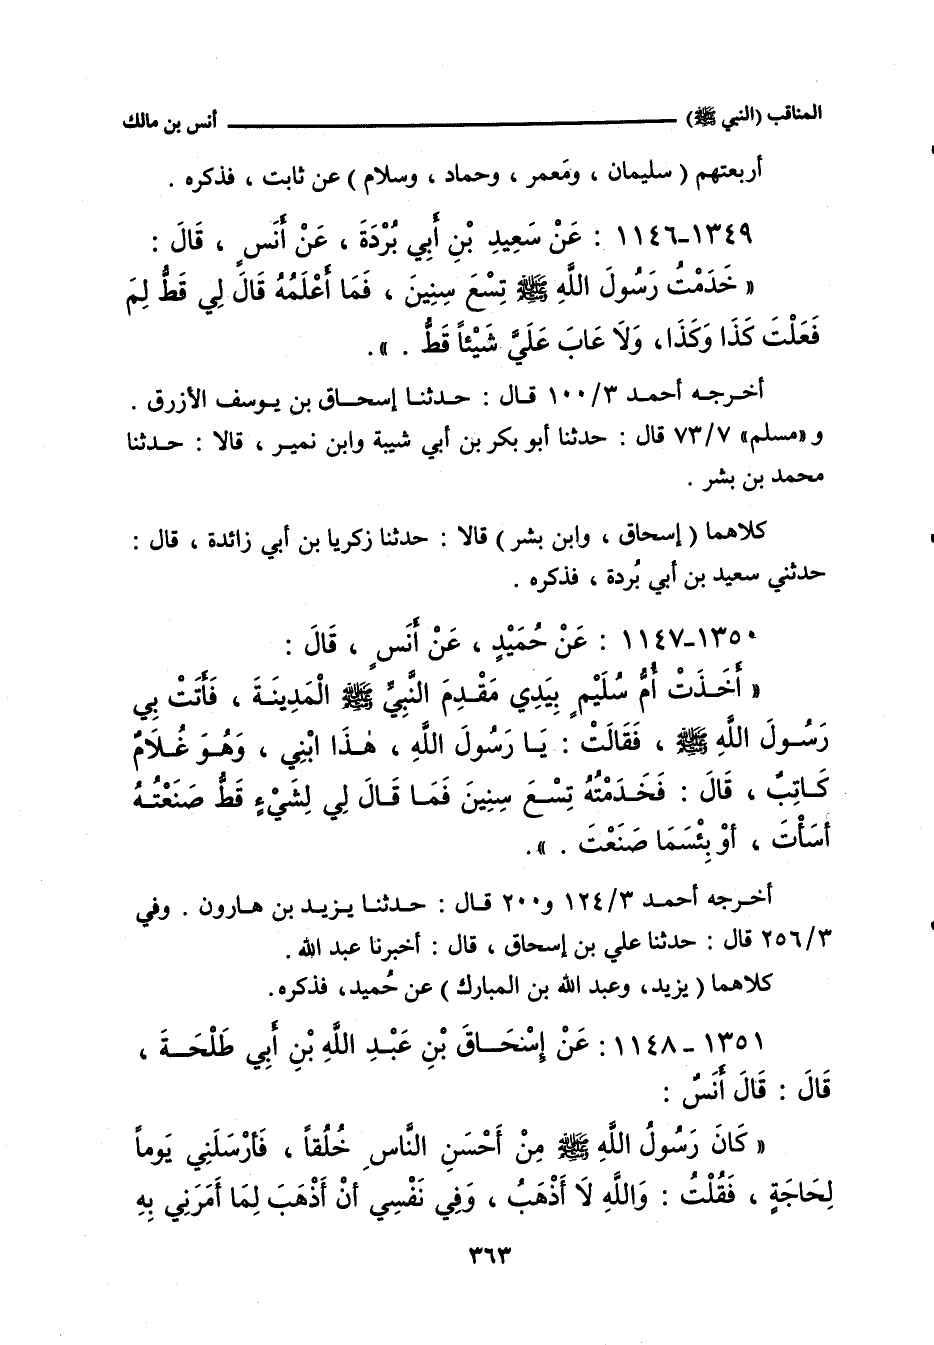 المناقب (النبي ﷺ) أنس بن مالك
أربعتهم ( سليمان ، ومَعمر ، وحماد ، وسلام ) عن ثابت ، فذكره .
١٣٤٩-١١٤٦ : عَنْ سَعِيدِ بْنِ أَبِي بُرْدَةَ ، عَنْ أَنَسٍ ، قَالَ :
« خَدَمْتُ رَسُولَ اللَّهِ ﷺ تِسْعَ سِنِينَ ، فَمَا أَعْلَمُهُ قَالَ لِي قَطُّ لِمَ
فَعَلْتَ كَذَا وَكَذَا، وَلَا عَابَ عَلَيَّ شَيْئاً قَطُّ . ».
أخرجه أحمد ٣/١٠٠ قال : حدثنا إسحاق بن يوسف الأزرق .
و «مسلم» ٧٣/٧ قال : حدثنا أبو بكر بن أبي شيبة وابن نمير ، قالا : حدثنا
محمد بن بشر .
كلاهما ( إسحاق ، وابن بشر ) قالا : حدثنا زكريا بن أبي زائدة ، قال :
حدثني سعيد بن أبي بُردة ، فذكره .
١٣٥٠-١١٤٧ : عَنْ حُمَيْدٍ ، عَنْ أَنَسٍ ، قَالَ :
« أَخَذَتْ أُمُّ سُلَيْمٍ بِيَدِي مَقْدِمَ النَّبِيِّ ﷺ الْمَدِينَةَ ، فَأَتَتْ بِي
رَسُولَ اللَّهِ ﷺ ، فَقَالَتْ : يَا رَسُولَ اللَّهِ ، هٰذَا ابْنِي ، وَهُوَ غُلَامٌ
كَاتِبٌ ، قَالَ : فَخَدَمْتُهُ تِسْعَ سِنِينَ فَمَا قَالَ لِي لِشَيْءٍ قَطُّ صَنَعْتُهُ
أَسَأْتَ ، أَوْ بِئْسَمَا صَنَعْتَ . ».
أخرجه أحمد ٣/١٢٤ و٢٠٠ قال : حدثنا يزيد بن هارون . وفي
٣/٢٥٦ قال : حدثنا علي بن إسحاق ، قال : أخبرنا عبد الله .
كلاهما ( يزيد، وعبد الله بن المبارك ) عن حُميد، فذكره.
١٣٥١ - ١١٤٨ : عَنْ إِسْحَاقَ بْنِ عَبْدِ اللَّهِ بْنِ أَبِي طَلْحَةَ ،
قَالَ : قَالَ أَنَسٌ :
« كَانَ رَسُولُ اللَّهِ ﷺ مِنْ أَحْسَنِ النَّاسِ خُلُقاً ، فَأَرْسَلَنِي يَوماً
لِحَاجَةٍ ، فَقُلْتُ : وَاللَّهِ لَا أَذْهَبُ ، وَفِي نَفْسِي أَنْ أَذْهَبَ لِمَا أَمَرَنِي بِهِ
٣٦٣